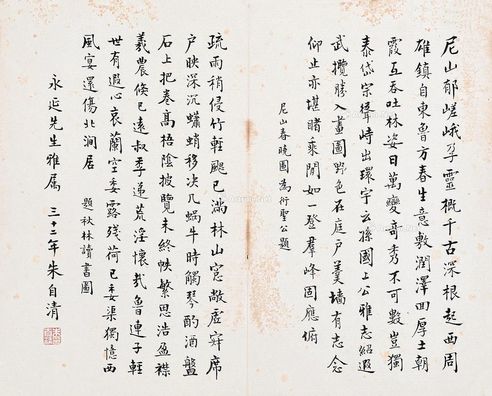 尼山郁嵯峨孕靈概千古深根起西周
雄鎮自東魯方春生意敷潤澤回厚土朝
霞互吞吐林姿日萬變奇秀不可數豈獨
泰岱宗聳峙出環宇云孫國上公雅志紹遐
武攬勝入畫圖野色在庭戶羹墻有志念
仰止亦堪睹乘閒如一登羣峰固應俯
尼山春曉圖為衍聖公題
疏雨稍侵竹輕颸已滿林山窗敞虛寂席
戶映深沉蠨蛸移几蝸牛時觸琴酌酒盤
石上把卷高梧陰披覽未終帙繁思浩盈襟
羲農倏已遠叔季遞荒淫懷哉魯連子輕
世有遐心哀蘭空委露殘荷已委渠獨憶西
風宴還傷北澗居 題秋林讀書圖
永延先生雅屬 三十二年朱自清